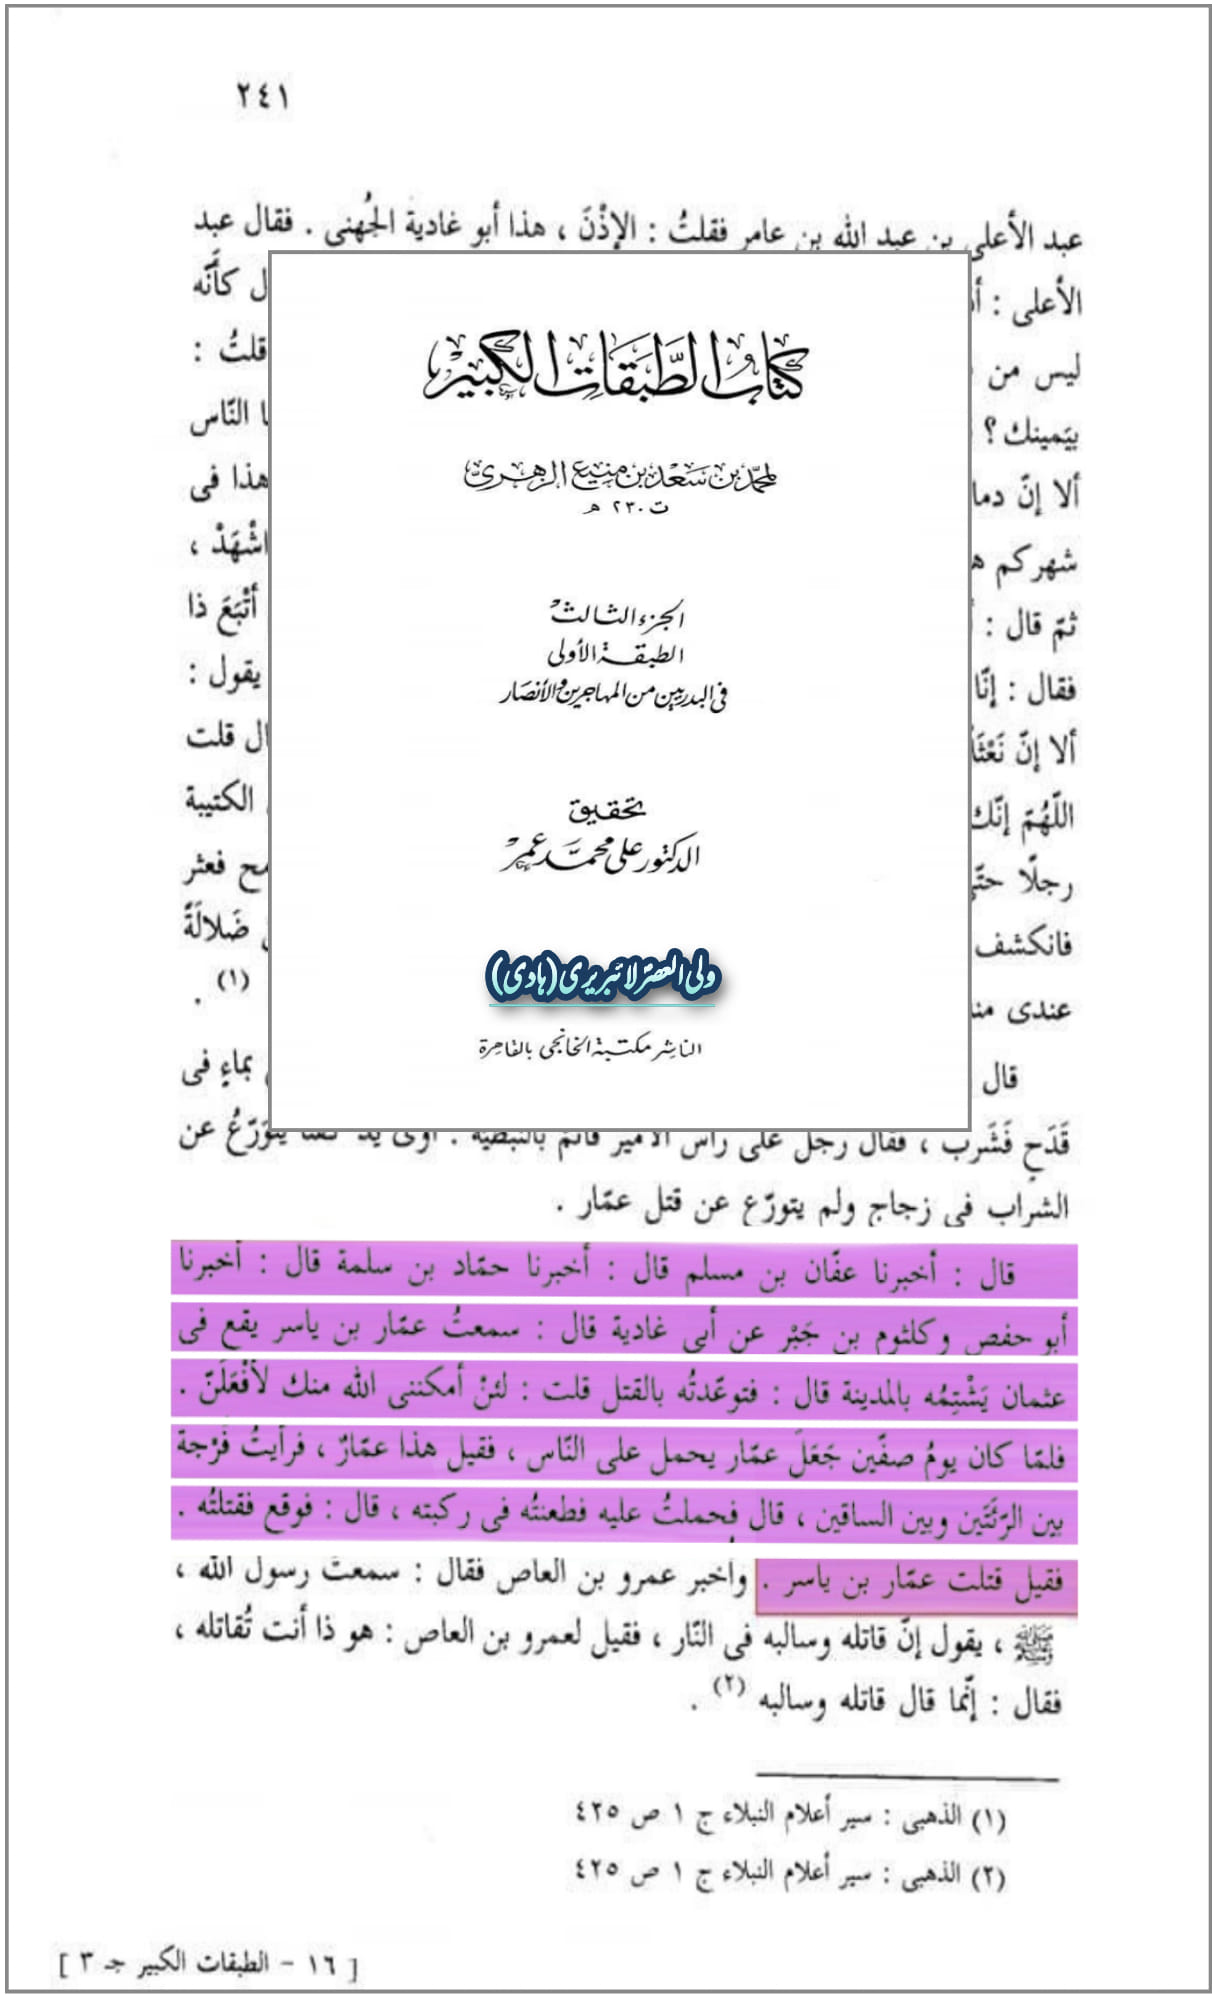 ٢٤١
عبد الأعلى بن عبد الله بن عامر فقلتُ : الإِذْنَ ، هذا أبو غادية الجُهنى . فقال عبد
الأعلى : ل كأنّه
ليس من قلتُ :
بيَمينك ؟ النّاس
ألا إنّ دما هذا فى
شهركم اشْهَدْ ،
ثمّ قال : أَتْبَعَ ذا
فقال : إنّا يقول :
ألا إنّ قلت
اللّهُمّ إنّك الكتيبة
رجلًا فعثر
فانكشف ضَلالَةً
عندى (١) .
قال بماءٍ فى
قَدَحٍ فَشَرب ، فقال رجل على رأس الأمير قائم بالنبطيّة : أوى يد كفتا يتورّعُ عن
الشراب فى زجاج ولم يتورّع عن قتل عمّار .
كتاب الطَّبَقَات الكبير
لمحمّد بن سَعْد بن منيع الزهرىّ
ت ٢٣٠ هـ
الجزء الثالث
الطبقة الأولى
فى البدريين من المهاجرين والأنصار
تحقيق
الدكتور على محمّد عمر
ولی العصر لائبریری (ہادی)
الناشر مكتبة الخانجى بالقاهرة
قال : أخبرنا عفّان بن مسلم قال : أخبرنا حمّاد بن سلمة قال : أخبرنا
أبو حفص وكلثوم بن جَبْر عن أبى غادية قال : سمعتُ عمّار بن ياسر يقع فى
عثمان يَشْتِمُه بالمدينة قال : فتوعّدتُه بالقتل قلت : لئنْ أمكننى الله منك لأفْعَلَنّ .
فلمّا كان يومُ صفّين جَعَلَ عمّار يحمل على النّاس ، فقيل هذا عمّارٌ ، فرأيتُ فُرْجة
بين الرّئَتَين وبين الساقين ، قال فحملتُ عليه فطعنتُه فى ركبته ، قال : فوقع فقتلتُه .
فقيل قتلت عمّار بن ياسر . وأخبر عمرو بن العاص فقال : سمعت رسول الله ،
ﷺ ، يقول إنّ قاتله وسالبه فى النّار ، فقيل لعمرو بن العاص : هو ذا أنت تُقاتله ،
فقال : إنّما قال قاتله وسالبه (٢) .
(١) الذهبى : سير أعلام النبلاء ج ١ ص ٤٢٥
(٢) الذهبى : سير أعلام النبلاء ج ١ ص ٤٢٥
[ ١٦ - الطبقات الكبير جـ ٣ ]